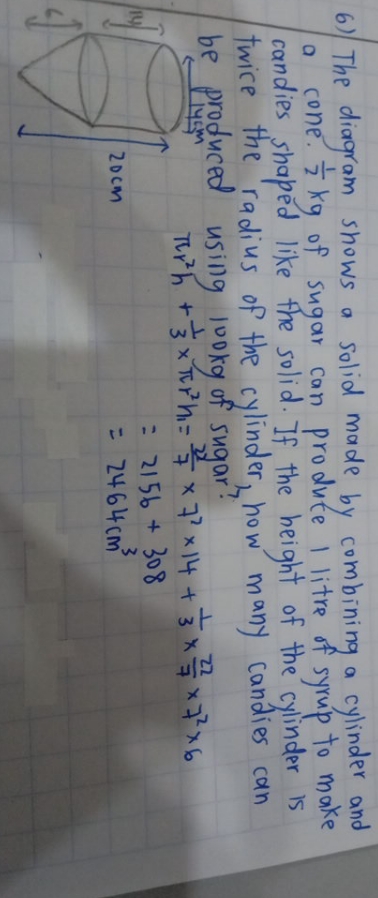 6) The diagram shows a solid made by combining a cylinder and
a cone. 1/2 kg of sugar can produce 1 litre of syrup to make
candies shaped like the solid. If the height of the cylinder is
twice the radius of the cylinder, how many candies can
be produced using 100kg of sugar?
14cm
14
6
20cm
πr²h + 1/3 × πr²h = 22/7 × 7² × 14 + 1/3 × 22/7 × 7² × 6
= 2156 + 308
= 2464cm³